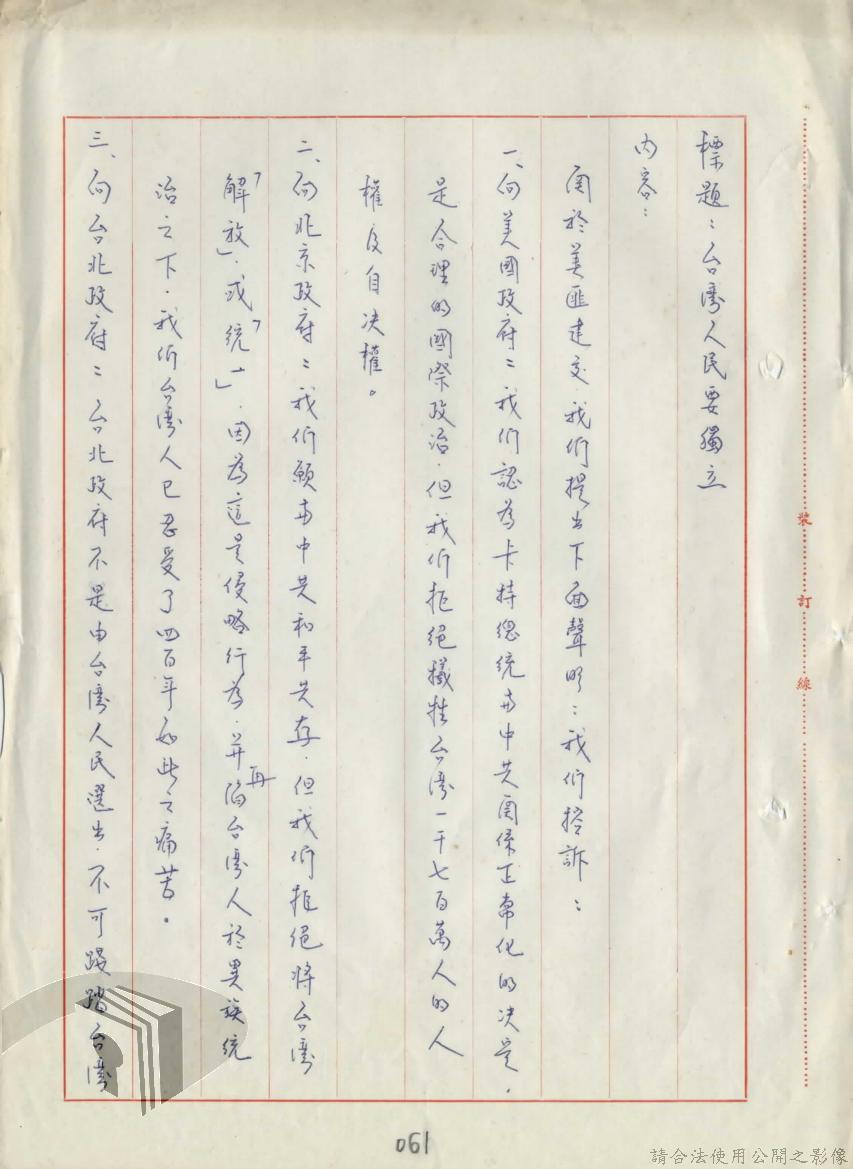 標題：台灣人民要獨立
內容：
關於美匪建交，我們提出下面聲明：我們控訴：
一、向美國政府：我們認為卡特總統與中共關係正常化的決定，
是合理的國際政治，但我們拒絕犧牲台灣一千七百萬人的人
權及自決權。
二、向北京政府：我們願與中共和平共存，但我們拒絕將台灣
「解放」，或「統一」，因為這是侵略行為，并再陷台灣人於異族統
治之下，我們台灣人已忍受了四百年如此之痛苦。
三、向台北政府：台北政府不是由台灣人民選出，不可踐踏台灣
裝訂線
061
請合法使用公開之影像